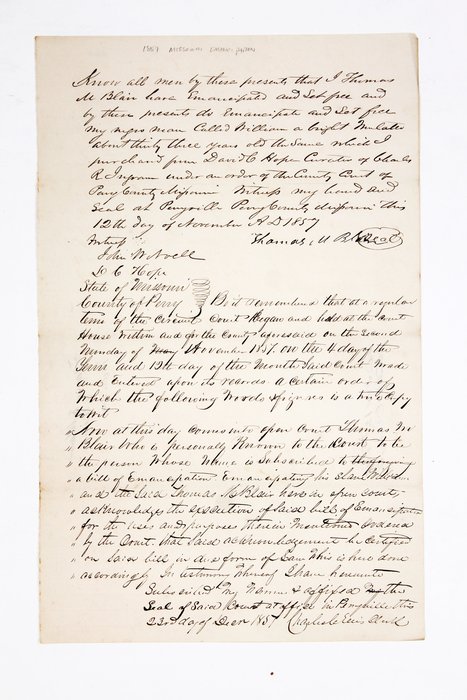 1857 MISSOURI EMANCIPATION
Know all men by these presents that I Thomas
M Blair have Emancipated and Set free and
by these presents do Emancipate and Set free
my negro man Called William a bright Mulatto
about thirty three years old the Same which I
purchased from David C Hope Curator of Charles
R. Ingram under an order of the County Court of
Perry County Missouri Witness my hand and
Seal at Perryville Perry County Missouri this
12th day of November A D 1857
Witness Thomas M Blair Seal
John W Noell
D C Hope
State of Missouri
County of Perry Be it remembered that at a regular
term of the Circuit Court began and held at the Court
House within and for the County aforesaid on the Second
Monday of November 1857. on the 4 day of the
Term and 13th day of the Month Said Court made
and Entered upon its records a Certain order of
Which the following Words & figures is a true Copy
to wit
" Now at this day comes into open Court Thomas M
" Blair Who is personally Known to the Court to be
" the person Whose Name is Subscribed to the foregoing
" a bill of Emancipation Emancipating his Slave William
" and the Said Thomas M Blair here in open court
" acknowledges the execution of Said bill of Emancipation
" for the uses and purposes therein Mentioned Ordered
" by the Court that Said acknowledgement be Certified
" on Said bill in due form of Law Which is here done
" accordingly In testimony Whereof I have hereunto
Subscribed My Name & affixed the
Seal of Said Court at office in Perryville this
23rd day of Decr 1857 Charles Ellis Clerk